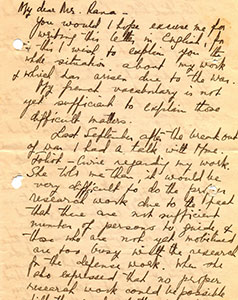 My dear Mrs. Rana –
You would I hope excuse me for
writing this letter in English, for
in this I wish to explain you the
whole situation about my work
which has arises due to the war.
My french vocabulary is not
yet sufficient to explain those
difficult matters.
Last September after the break out
of war I had a talk with Mme.
Joliot-Curie regarding my work.
She told me then it would be
very difficult to do the proper
research work due to the fact
that there are not sufficient
number of persons to guide &
those who are not yet mobilised
are too busy with the research
for the defence work. When she
also expressed that no proper
research work could be possible